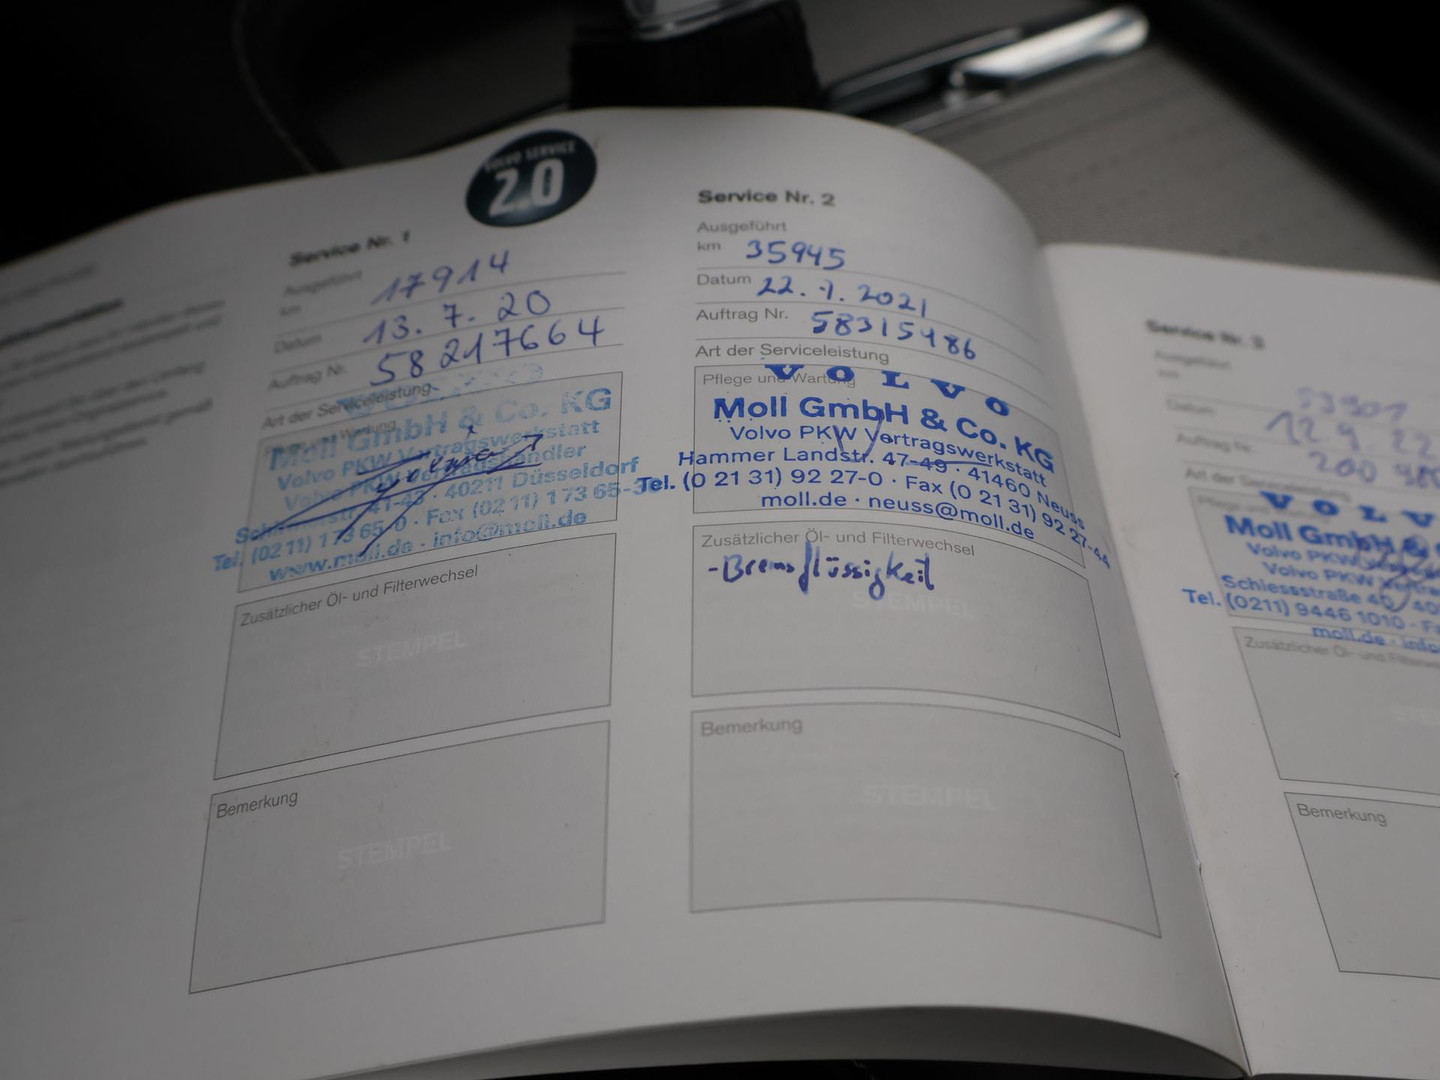 VOLVO SERVICE
2.0
Service Nr. 1
Ausgeführt
km 17914
Datum 13. 7. 20
Auftrag Nr. 58217664
Art der Serviceleistung
Moll GmbH & Co. KG
Volvo PKW Vertragswerkstatt
Volvo PKW Vertragshändler
41-43 · 40211 Düsseldorf
Tel. (02 11) 173 65-0 · Fax (02 11) 1 73 65-
www.moll.de · info@moll.de
Zusätzlicher Öl- und Filterwechsel
STEMPEL
Bemerkung
STEMPEL
Service Nr. 2
Ausgeführt
km 35945
Datum 22. 7. 2021
Auftrag Nr. 58315486
Art der Serviceleistung
Pflege und Wartung
VOLVO
Moll GmbH & Co. KG
Volvo PKW Vertragswerkstatt
Hammer Landstr. 47-49 · 41460 Neuss
Tel. (0 21 31) 92 27-0 · Fax (0 21 31) 92 27-44
moll.de · neuss@moll.de
Zusätzlicher Öl- und Filterwechsel
-Bremsflüssigkeit
STEMPEL
Bemerkung
STEMPEL
Service Nr. 3
Ausgeführt
km 53901
Datum 12 9. 22
Auftrag Nr. 200
Art der Serviceleistung
VOLV
Moll GmbH &
Volvo PKW
Volvo PKW
Schiessstraße
Tel. (0211) 9446 1010 ·
moll.de · info
Zusätzlicher Öl- und Filterwe
Bemerkung